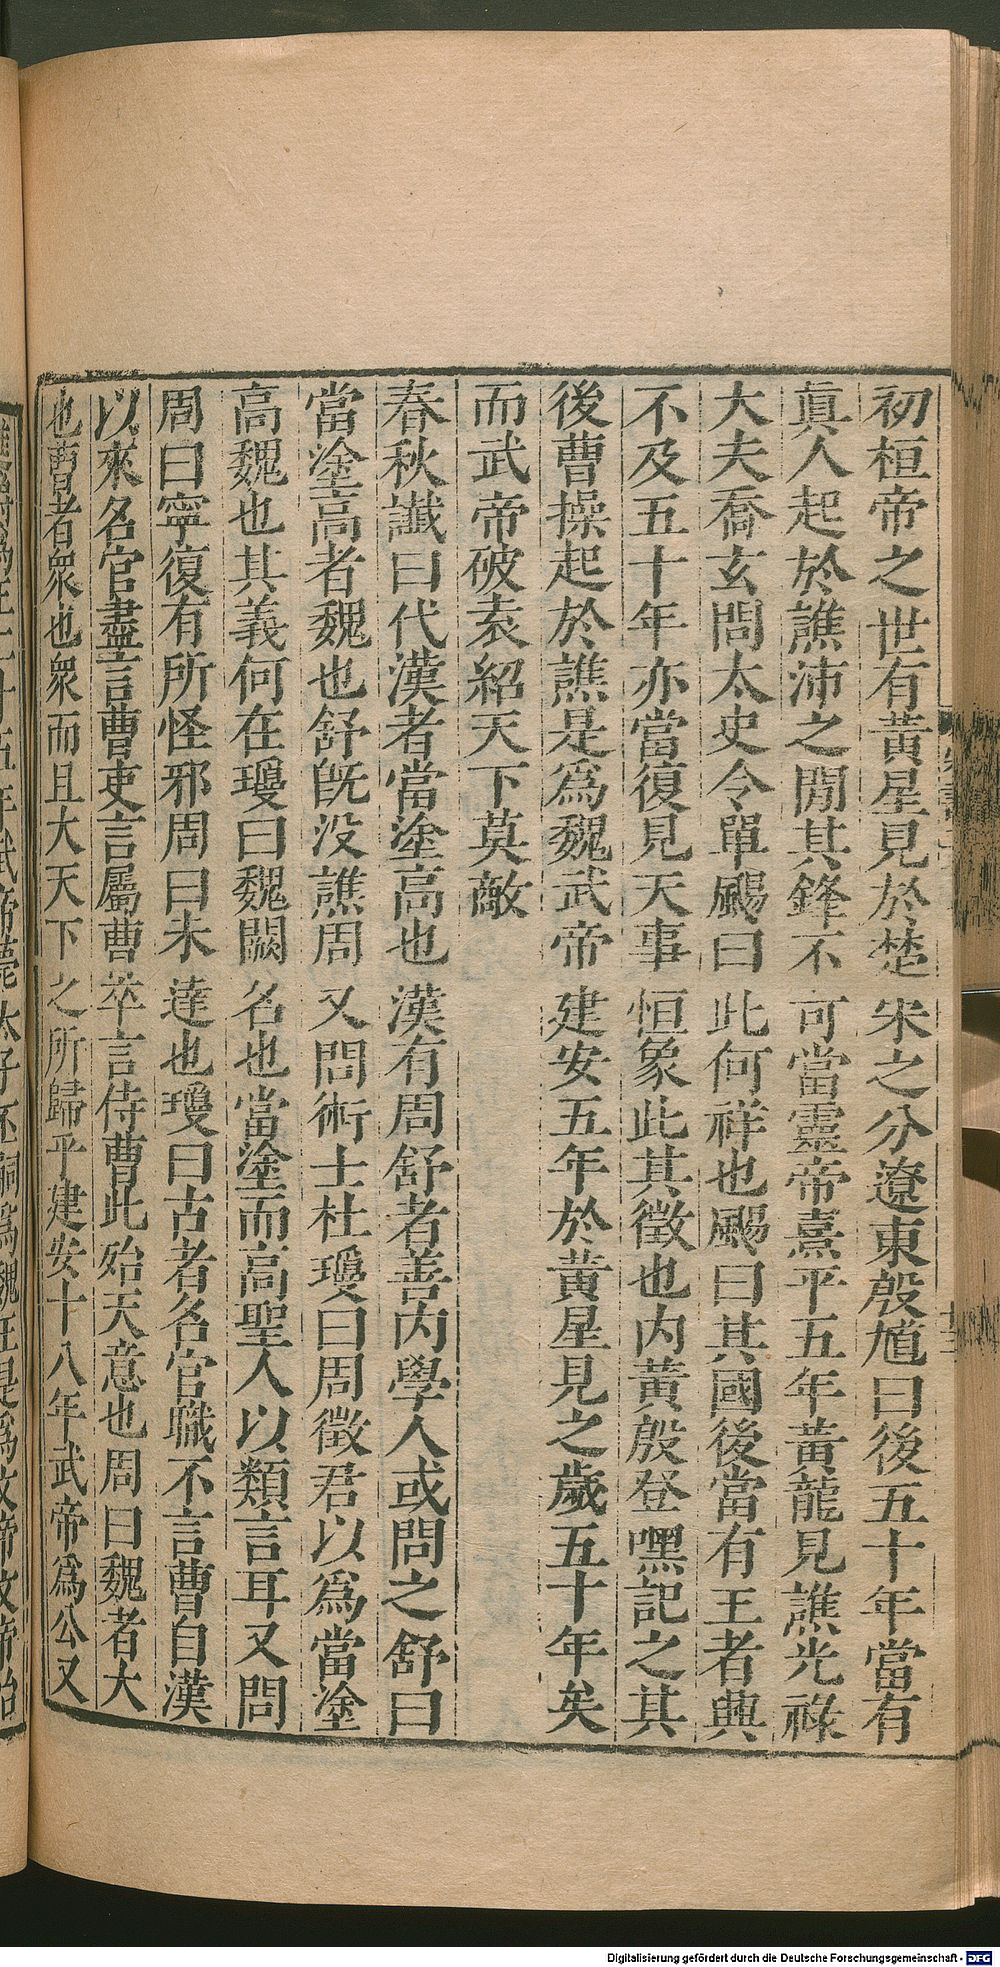 初桓帝之世有黃星見於楚宋之分遼東殷馗曰後五十年當有
眞人起於譙沛之閒其鋒不可當靈帝熹平五年黃龍見譙光祿
大夫喬玄問太史令單颺曰此何祥也颺曰其國後當有王者興
不及五十年亦當復見天事恒象此其徵也內黃殷登嘿記之其
後曹操起於譙是爲魏武帝建安五年於黃星見之歲五十年矣
而武帝破袁紹天下莫敵
春秋讖曰代漢者當塗高也漢有周舒者善內學人或問之舒曰
當塗高者魏也舒旣没譙周又問術士杜瓊曰周徵君以爲當塗
高魏也其義何在瓊曰魏闕名也當塗而高聖人以類言耳又問
周曰寧復有所怪邪周曰未達也瓊曰古者名官職不言曹自漢
以來名官盡言曹吏言屬曹卒言侍曹此殆天意也周曰魏者大
也曹者衆也衆而且大天下之所歸乎建安十八年武帝爲公又
年武帝薨太子丕嗣爲魏王是爲文帝文帝始
Digitalisierung gefördert durch die Deutsche Forschungsgemeinschaft - DFG